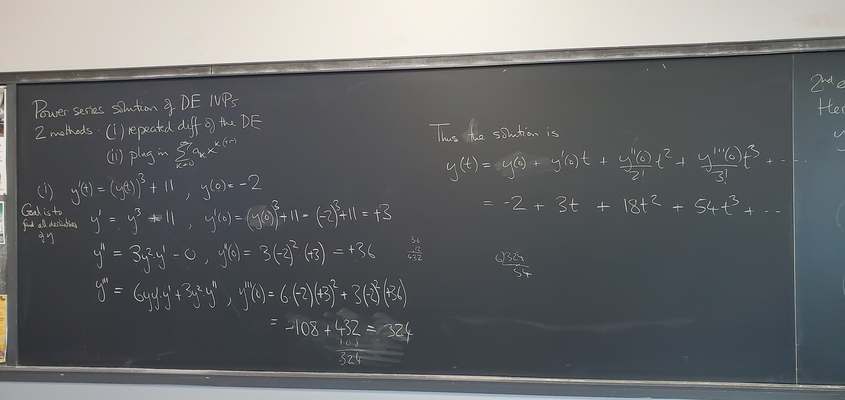 Power series solution of DE IVPs
2 methods: (i) repeated diff of the DE
(ii) plug in ∑_{k=0}^∞ a_k x^{k(+r)}
(i) y'(t) = (y(t))³ + 11 , y(0) = -2
Goal is to
find all derivatives
of y
y' = y³ + 11 , y'(0) = (y(0))³ + 11 = (-2)³ + 11 = +3
y'' = 3y²·y' - 0 , y''(0) = 3(-2)²·(+3) = +36
y''' = 6yy'·y' + 3y²·y'' , y'''(0) = 6·(-2)(+3)² + 3(-2)²(+36)
= -108 + 432 = 324
324
36
12
432
Thus the solution is
y(t) = y(0) + y'(0)t + y''(0)/2! t² + y'''(0)/3! t³ + ....
= -2 + 3t + 18t² + 54t³ + ...
6)324
54
2nd
Her
y